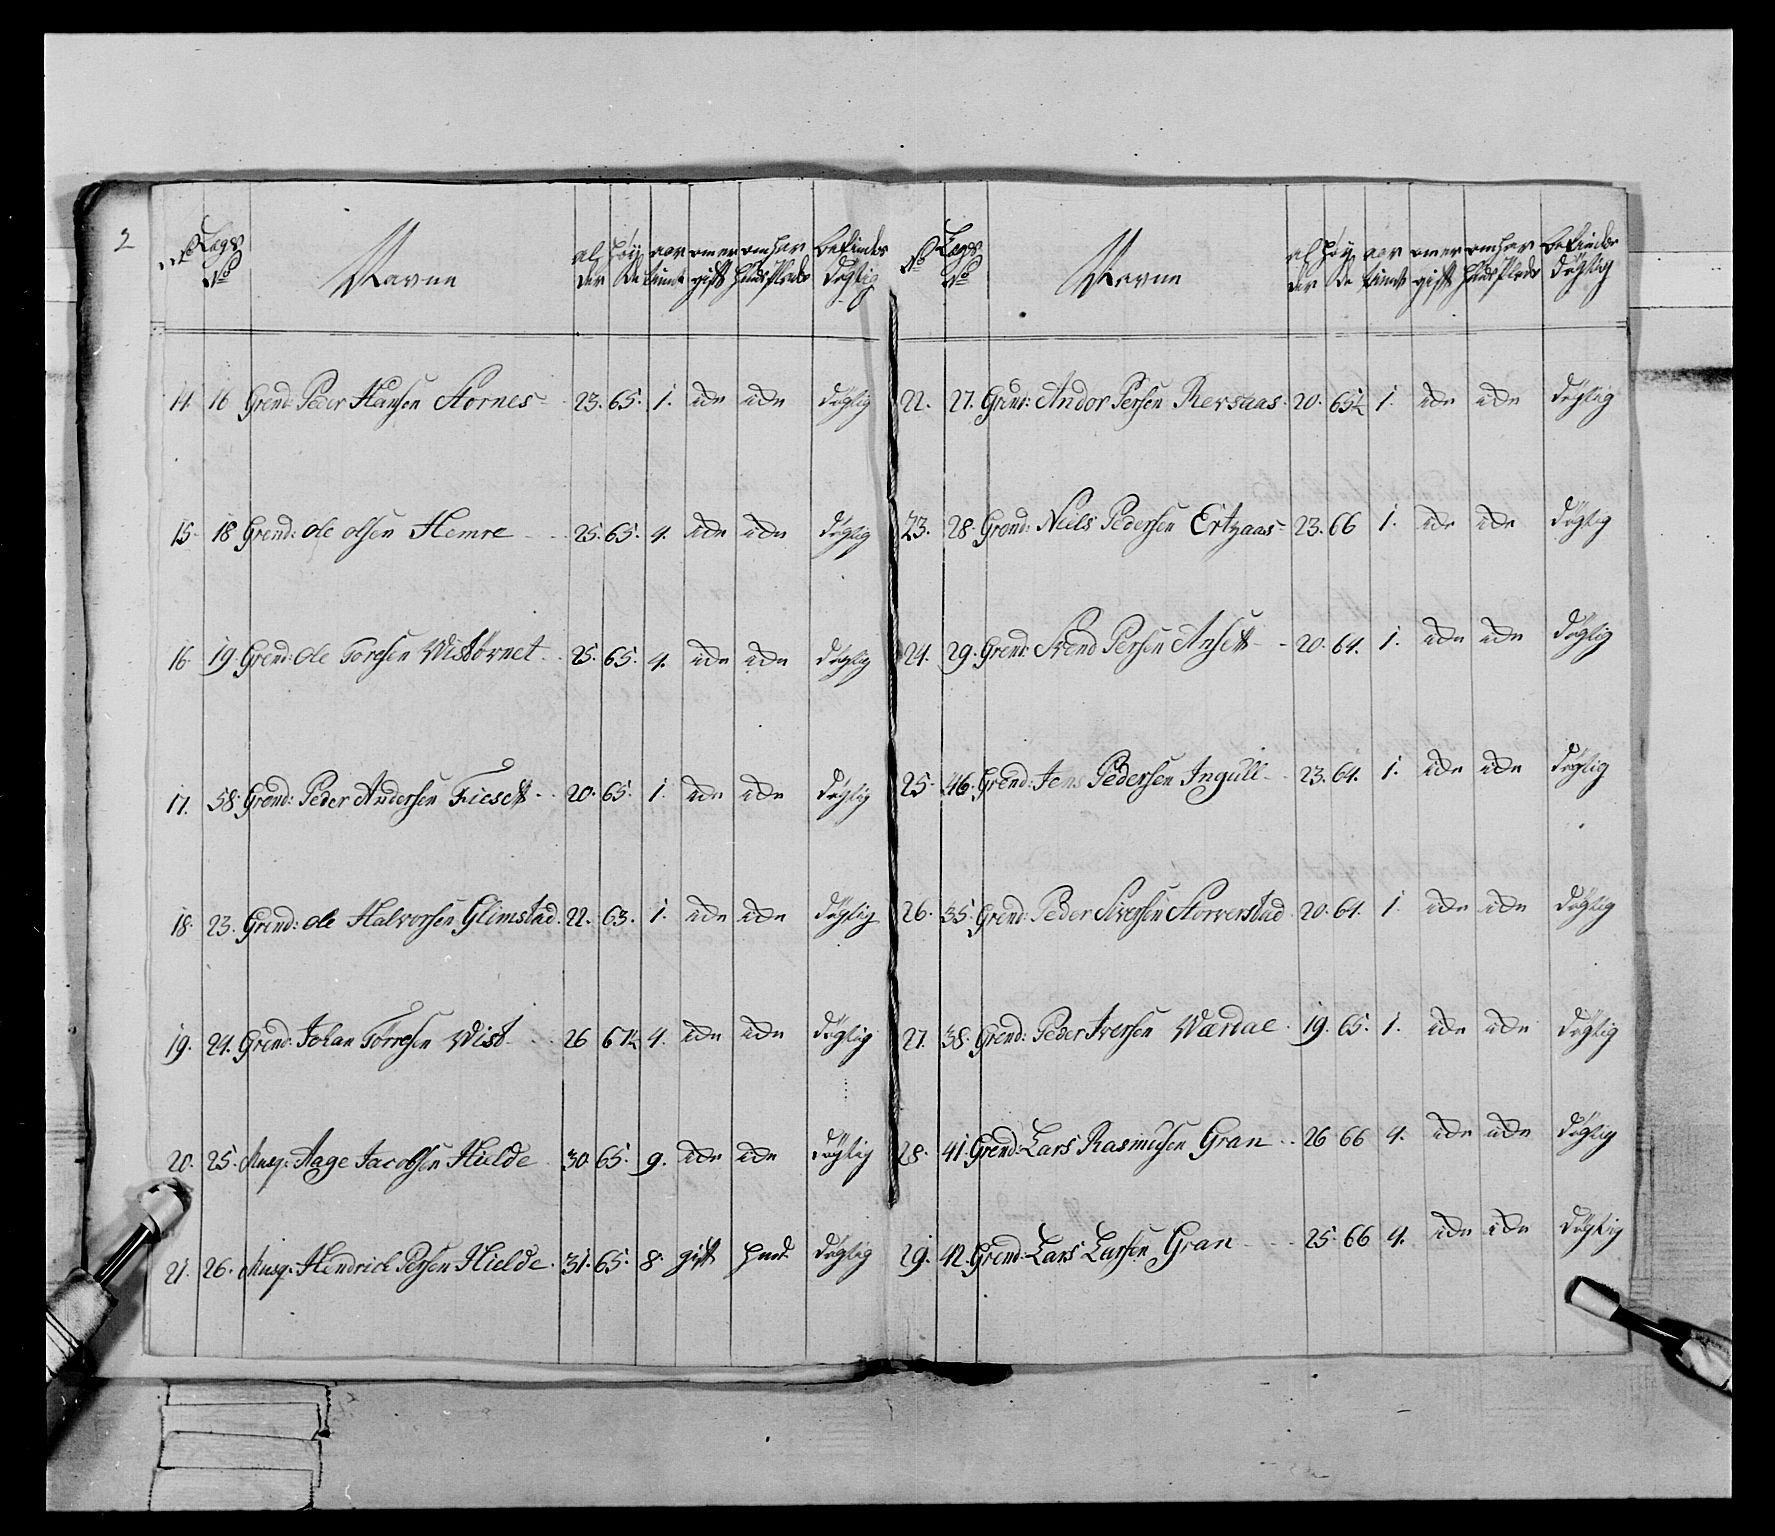 2
No Legds No Navne al der höy de aar tient om er gift om har huusplads befindes dögtig
14. 16 Grend: Peder Hansen Stornes 23. 65. 1. ide ide dögtig
15. 18 Grend: Ole Olsen Hemre 25. 65. 4. ide ide dögtig
16. 19 Grend: Ole Toresen Wistörnet 25. 65. 4. ide ide dögtig
17. 58 Grend: Peder Andersen Fiesett 20. 65. 1. ide ide dögtig
18. 23. Grend: Ole Halvorsen Glimstad 22. 63. 1. ide ide dögtig
19. 24. Grend: Johan Torresen Wist 26 67½ 4. ide ide dögtig
20. 25. Musq: Aage Jacobsen Hielde 30. 65. 9. ide ide dögtig
21. 26. Musq: Hendrich Persen Hielde 31. 65. 8. gift huus dögtig
No Legds No Navne al der höy de aar tient om er gift om har huusplads befindes dögtig
22. 27. Grend: Andor Persen Rersaas 20. 65½ 1. ide ide dögtig
23. 28. Grend: Niels Pedersen Ertzaas 23. 66 1. ide ide dögtig
24. 29. Grend: Svend Persen Ansett 20. 64. 1. ide ide dögtig
25. 46. Grend: Jens Pedersen Ingull 23. 64. 1. ide ide dögtig
26. 35. Grend: Peder Siversen Storverstad 20. 64. 1. ide ide dögtig
27. 38. Grend: Peder Iversen Wærdae 19. 65. 1. ide ide dögtig
28. 41. Grend: Lars Rasmusen Gran 26 66 4. ide ide dögtig
29. 42. Grend: Lars Larsen Gran 25. 66 4. ide ide dögtig